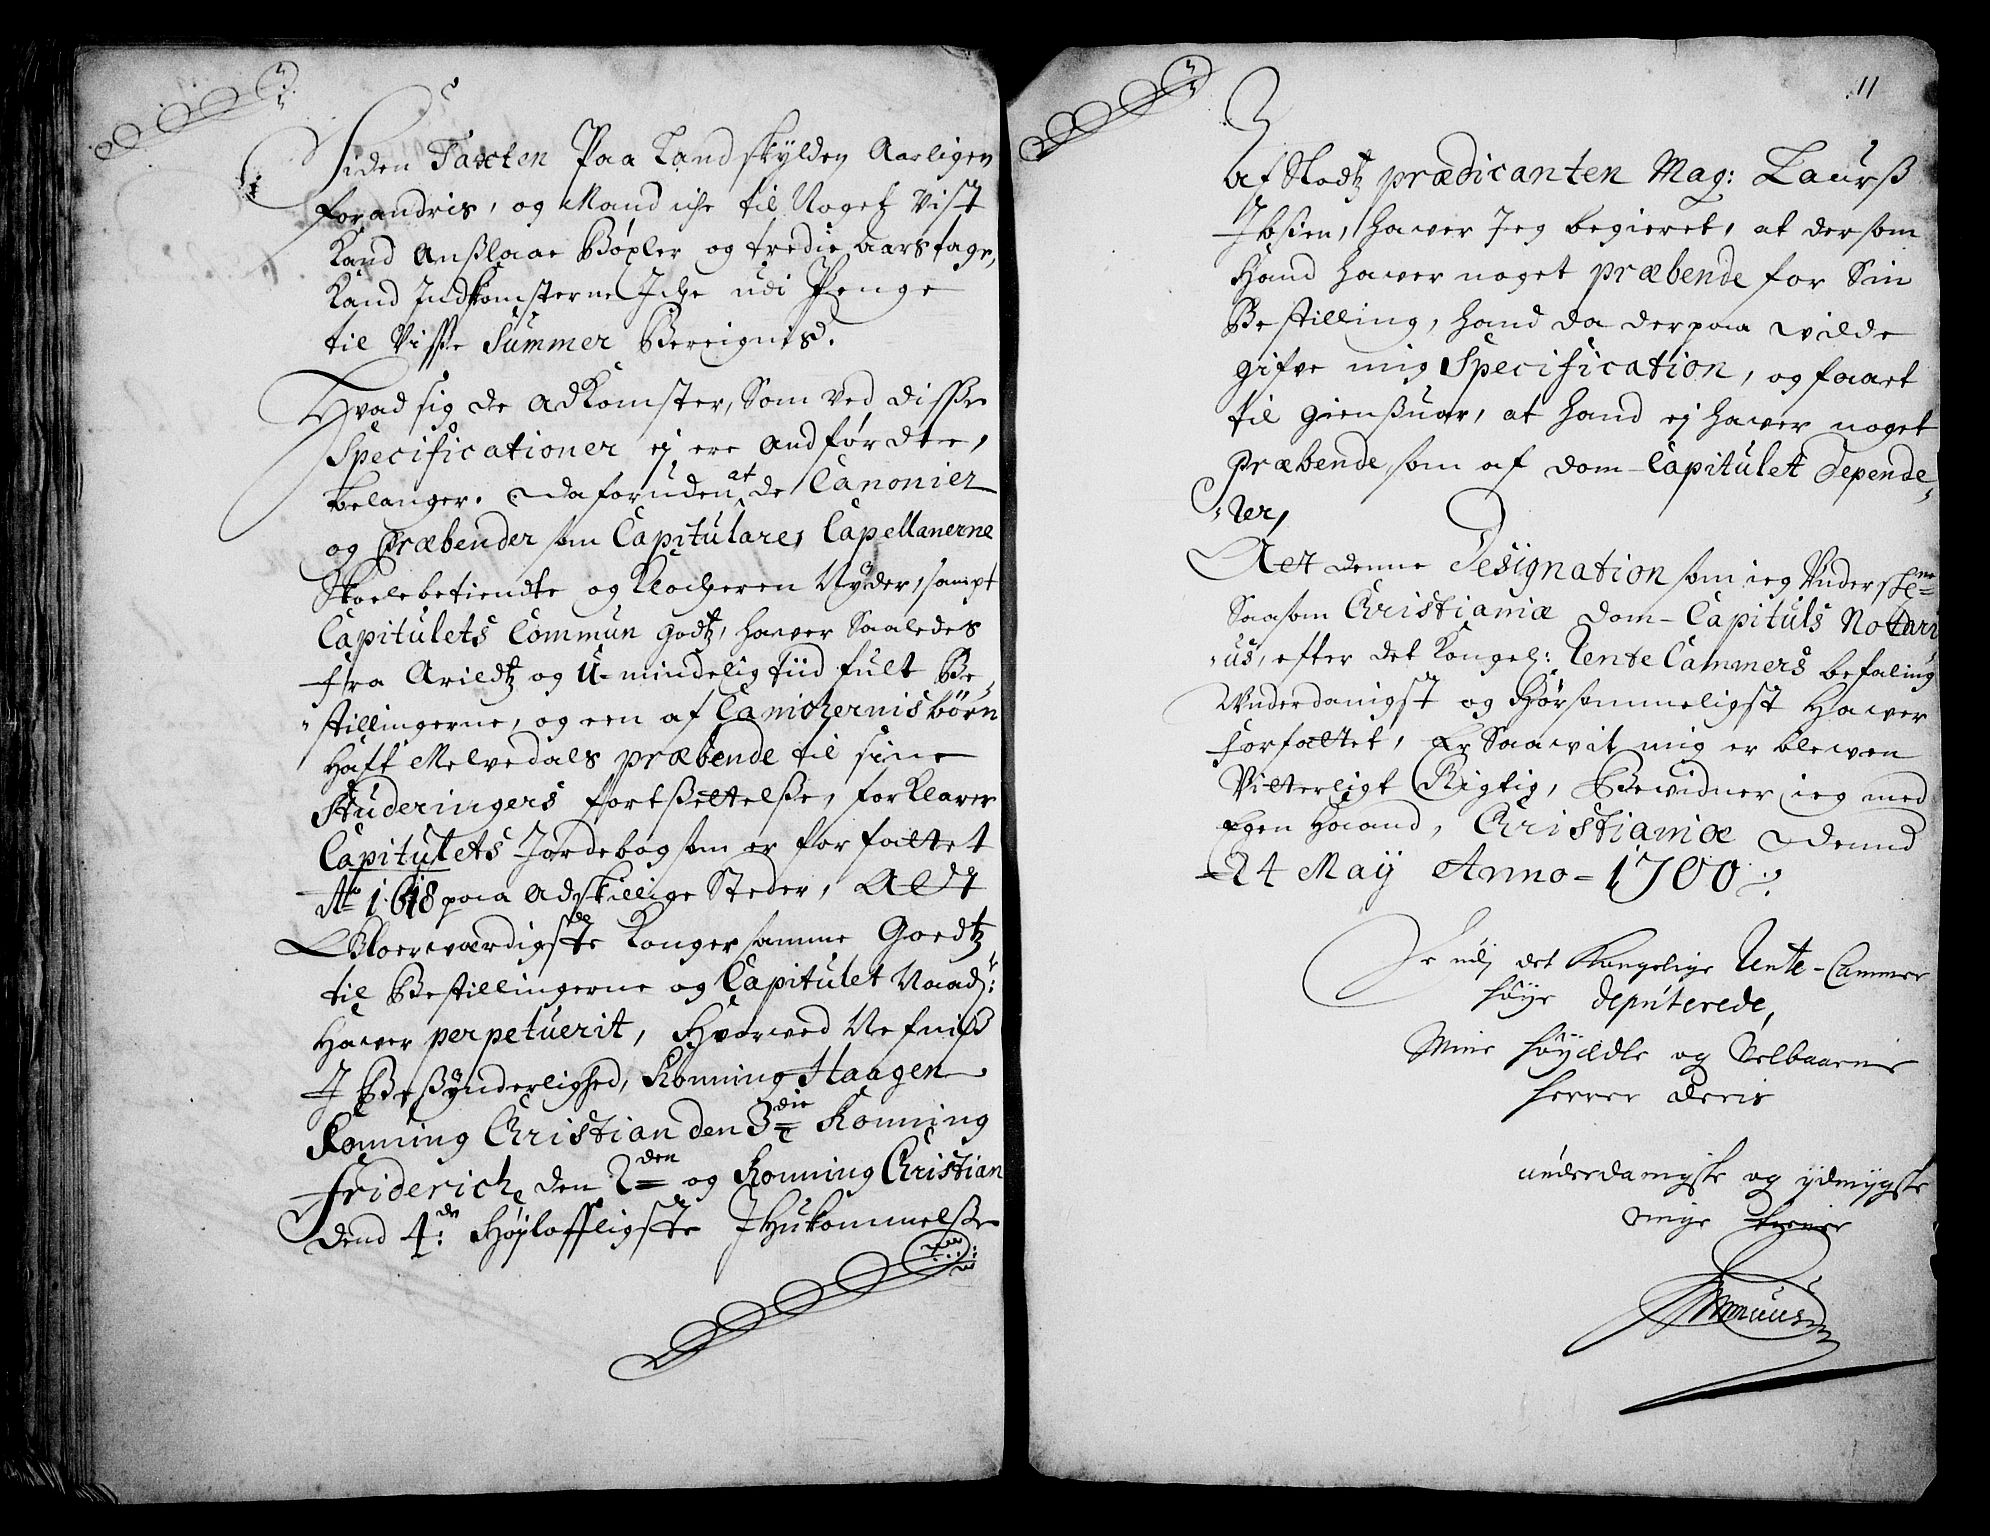 Siden Taxten Paa Landskylden Aarligen
forandris, og Mand iche til Noget Vist
Kand Anßlaae Böxler og tredie aars tage,
Kand Indkomsterne Iche udi Penge
til Visse Summer Bereignis.
Hvad sig de Adkomster, Som ved disse
Specificationer ej ere Andförde,
belanger. Da foruden at de Canonier
og Præbender som Capitulares, Capellanerne
Skolebetiendte og Klocheren Nyder, sampt
Capitulets Commun godtz, hawer Saaledes
fra Arildtz og U-mindelig tiid fult Be„
„stillingerne, og een af Canichernis börn
Haft Melvedals præbende til sine
Studeringers fortßettelße, forklarer
Capitulets Jordebog som er forfattet
Ao 1618 paa Adskillige Steder, Aldt
Loerværdigste Konger samme Goedtz
til Bestillingerne og Capitulet Naadr:
Hawer perpetuerit, Hvorved Nefniß
I Beßÿnderlighed, Konning Haagen
Konning Christian den 3die Konning
Friderich den 2den og Konning Christian
Dend 4de: Höjlofligste IHukommelße
11
Af Slodtz prædicanten Mag: Laurß
Ibsien, hawer Jeg begieret, at dersom
Hand hawer noget præbende for Sin
Bestilling, hand da derpaa wilde
gifve mig Specification, og faaet
til gienßuar, at hand ej hawer noget
Præbende, som af Dom-Capitulet Depende„
„rer,
Aet denne Designation som ieg Underskne
Saasom Christianiæ Dom-Capituls Notari
„us, efter det Kongel: Rente Cammers befaling
Underdanigst og Hörsommeligst Hawer
forfattet, Er Saawit mig er blewen
Vitterligt Rigtig, Bevidner ieg med
Egen Haand, Christianiæ Dend
24 Maÿ Anno 1700
det Kongelige Rente-Cammer
höye deputerede,
Mine höyædle og Velbaarne
herrer deris
underdanigste og ydmygste
ringe tienere